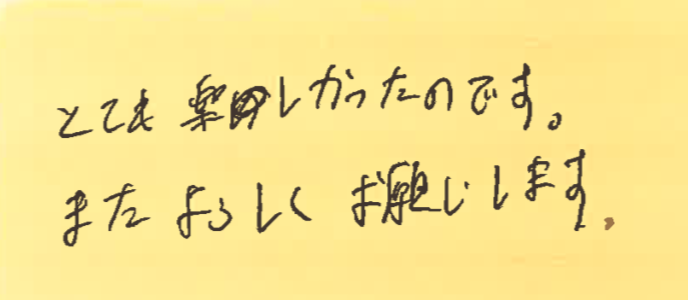 とても楽しかったのです。
またよろしくお願いします。